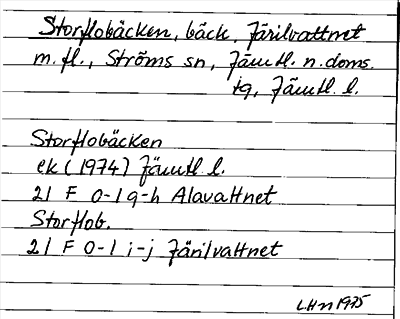 Storflobäcken, bäck, Järilvattnet
m.fl., Ströms sn, Jämtl. n. doms.
tg, Jämtl. l.
Storflobäcken
ek (1974) Jämtl. l.
21 F 0-1 g-h Alavattnet
Storflob.
21 F 0-1 i-j Järilvattnet
LHn 1975